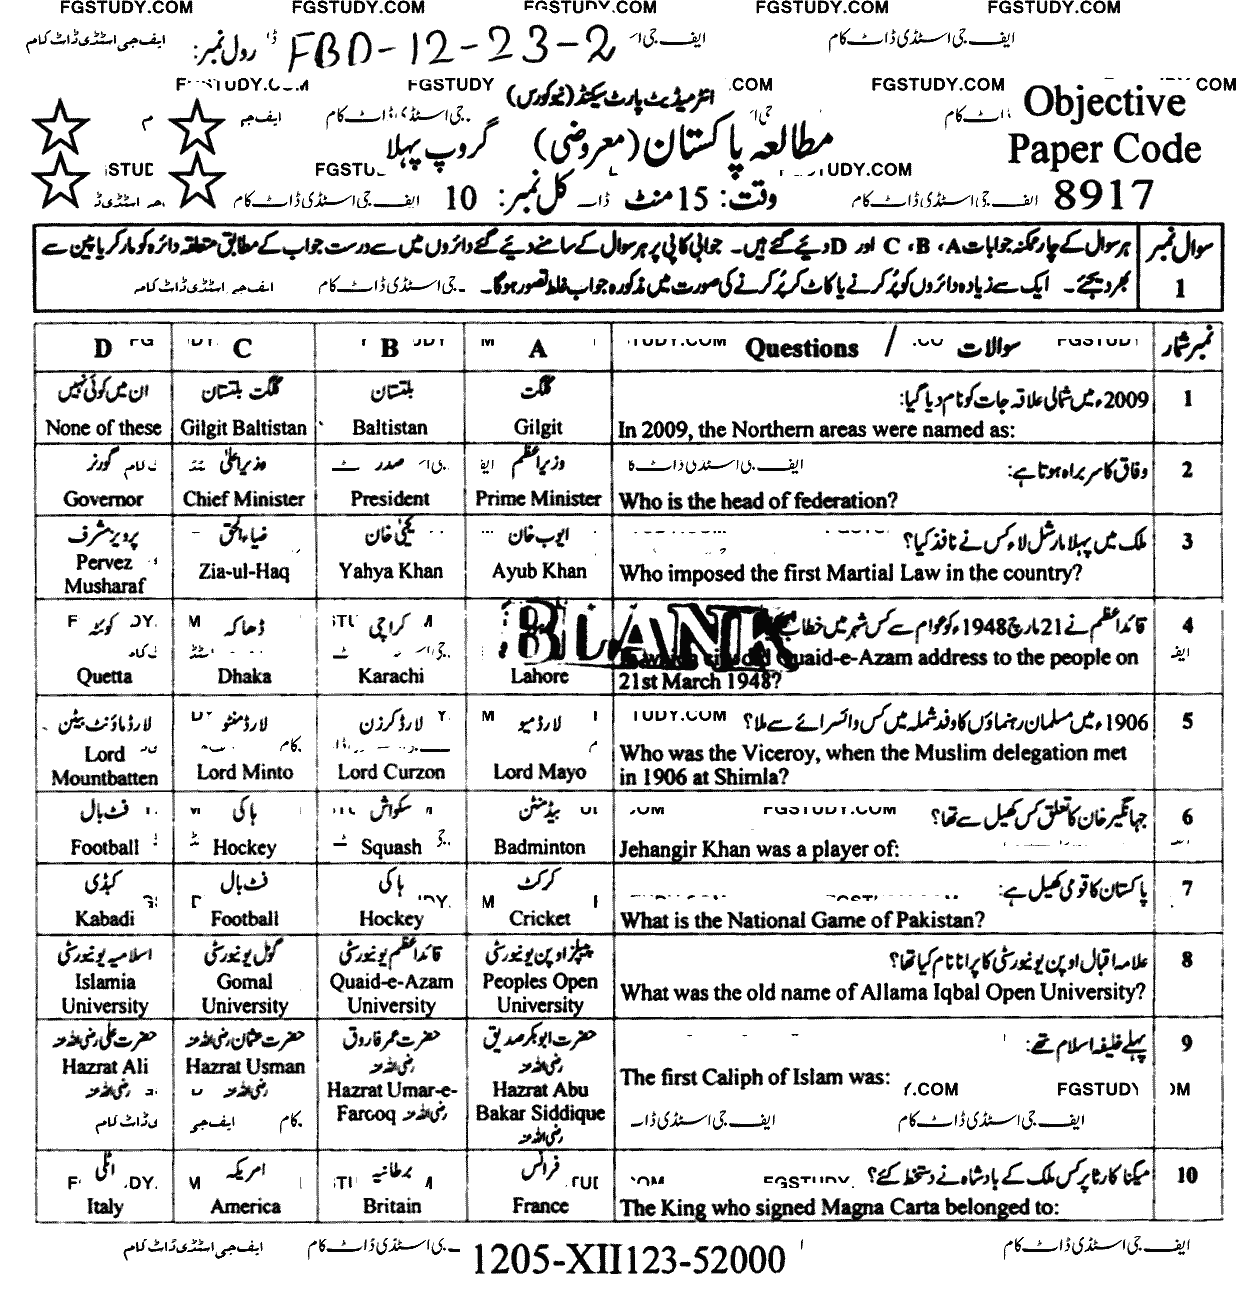 FGSTUDY.COM FGSTUDY.COM FGSTUDY.COM FGSTUDY.COM FGSTUDY.COM
رول نمبر: FBD-12-23-2
انٹرمیڈیٹ پارٹ سیکنڈ (نیو کورس)
Objective
مطالعہ پاکستان (معروضی) گروپ پہلا
Paper Code
وقت: 15 منٹ کل نمبر: 10
8917
سوال نمبر 1
ہر سوال کے چار ممکنہ جوابات A، B، C اور D دیئے گئے ہیں۔ جوابی کاپی پر ہر سوال کے سامنے دیئے گئے دائروں میں سے درست جواب کے مطابق متعلقہ دائرہ کو مارکر یا پین سے
بھر دیجئے۔ ایک سے زیادہ دائروں کو پُر کرنے یا کاٹ کر پُر کرنے کی صورت میں مذکورہ جواب غلط تصور ہوگا۔
D C B A Questions / سوالات نمبر شمار
ان میں کوئی نہیں گلگت بلتستان بلتستان گلگت 2009ء میں شمالی علاقہ جات کو نام دیا گیا: 1
None of these Gilgit Baltistan Baltistan Gilgit In 2009, the Northern areas were named as:
گورنر وزیراعلیٰ صدر وزیراعظم وفاق کا سربراہ ہوتا ہے: 2
Governor Chief Minister President Prime Minister Who is the head of federation?
پرویز مشرف ضیاءالحق یحییٰ خان ایوب خان ملک میں پہلا مارشل لاء کس نے نافذ کیا؟ 3
Pervez Musharaf Zia-ul-Haq Yahya Khan Ayub Khan Who imposed the first Martial Law in the country?
کوئٹہ ڈھاکہ کراچی قائداعظم نے 21 مارچ 1948ء کو عوام سے کس شہر میں خطاب 4
BLANK
Quaid-e-Azam address to the people on
Quetta Dhaka Karachi Lahore 21st March 1948?
لارڈ ماؤنٹ بیٹن لارڈ منٹو لارڈ کرزن لارڈ میو 1906ء میں مسلمان رہنماؤں کا وفد شملہ میں کس وائسرائے سے ملا؟ 5
Lord Mountbatten Lord Minto Lord Curzon Lord Mayo Who was the Viceroy, when the Muslim delegation met
in 1906 at Shimla?
فٹ بال ہاکی سکواش بیڈمنٹن جہانگیر خان کا تعلق کس کھیل سے تھا؟ 6
Football Hockey Squash Badminton Jehangir Khan was a player of:
کبڈی فٹ بال ہاکی کرکٹ پاکستان کا قومی کھیل ہے: 7
Kabadi Football Hockey Cricket What is the National Game of Pakistan?
اسلامیہ یونیورسٹی گومل یونیورسٹی قائداعظم یونیورسٹی پیپلز اوپن یونیورسٹی علامہ اقبال اوپن یونیورسٹی کا پرانا نام کیا تھا؟ 8
Islamia University Gomal University Quaid-e-Azam University Peoples Open University What was the old name of Allama Iqbal Open University?
حضرت علی رضی اللہ عنہ حضرت عثمان رضی اللہ عنہ حضرت عمر فاروق رضی اللہ عنہ حضرت ابوبکر صدیق رضی اللہ عنہ پہلے خلیفہ اسلام تھے: 9
Hazrat Ali رضی اللہ عنہ Hazrat Usman رضی اللہ عنہ Hazrat Umar-e-Farooq رضی اللہ عنہ Hazrat Abu Bakar Siddique رضی اللہ عنہ The first Caliph of Islam was:
اٹلی امریکہ برطانیہ فرانس میگنا کارٹا پر کس ملک کے بادشاہ نے دستخط کئے؟ 10
Italy America Britain France The King who signed Magna Carta belonged to:
1205-XII123-52000